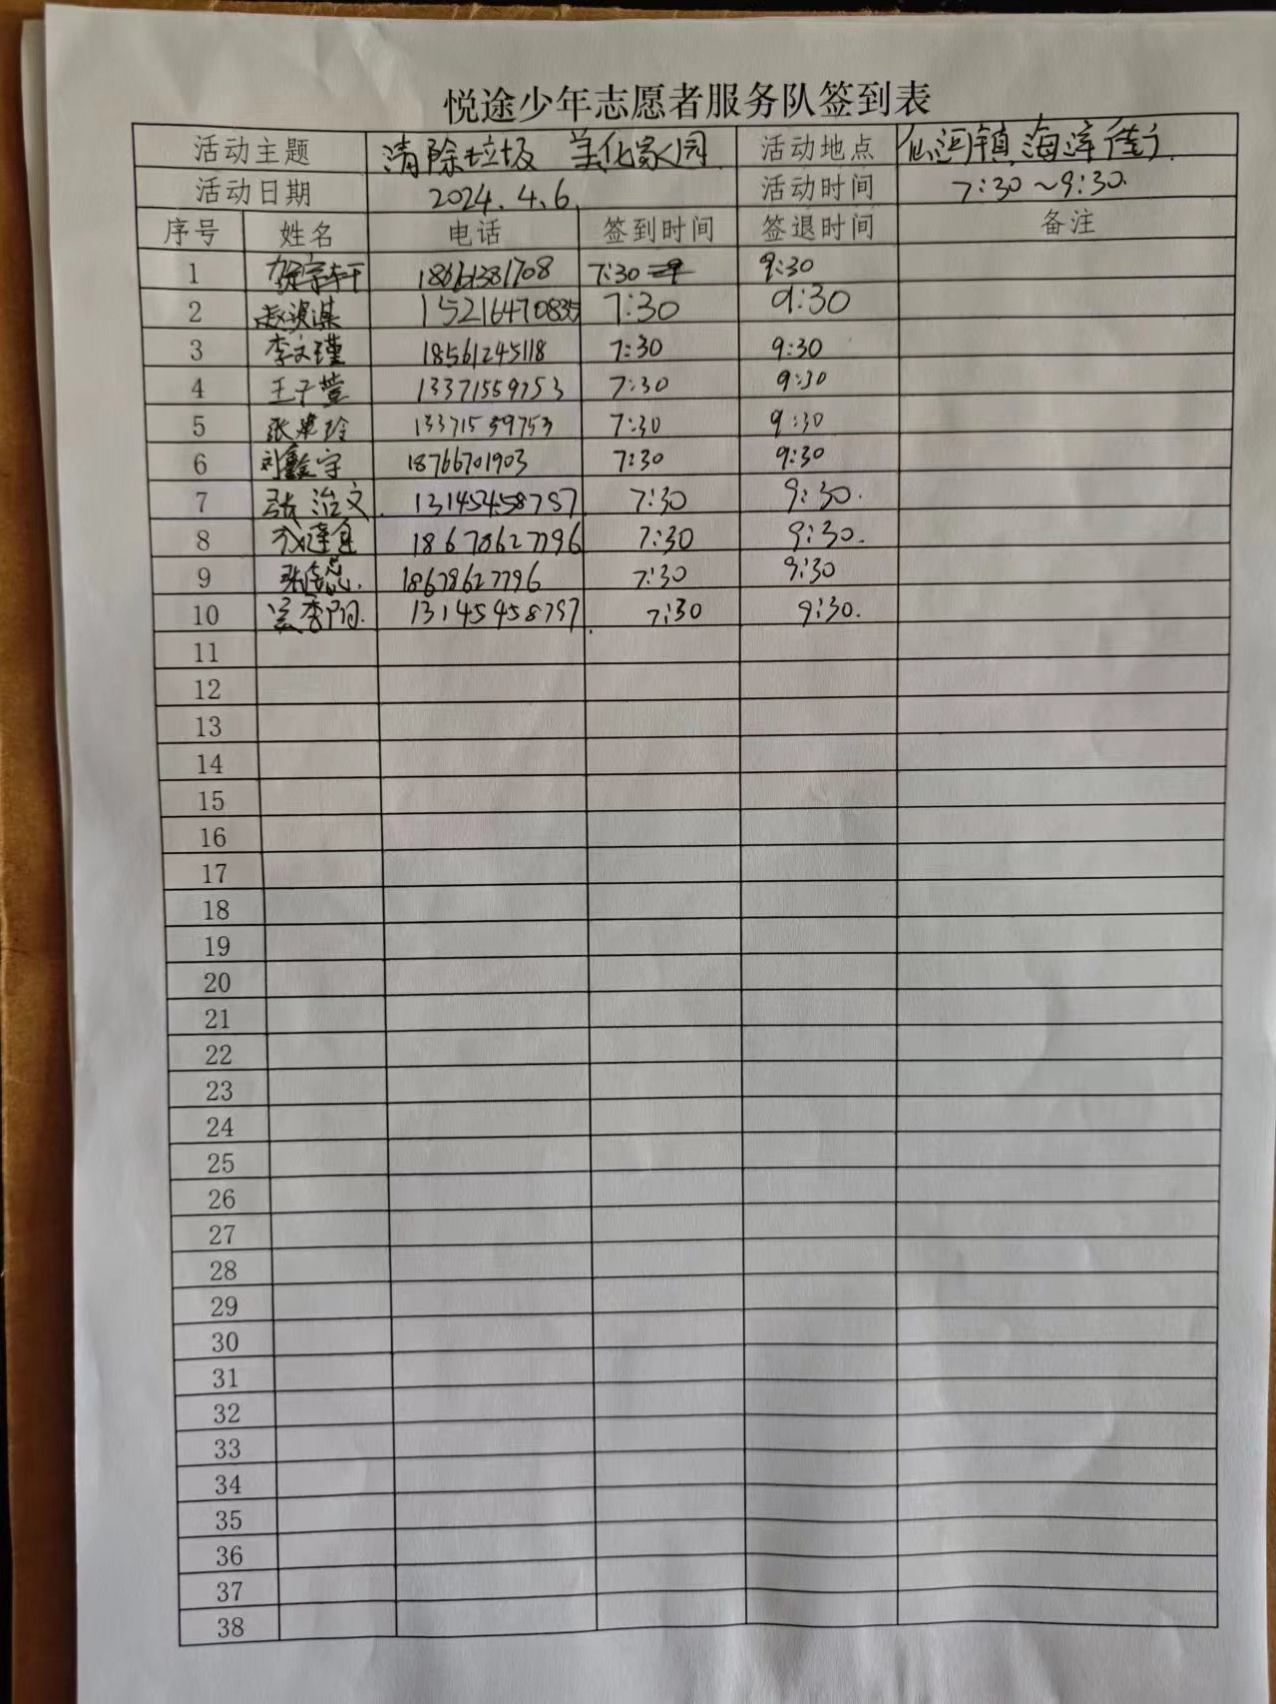 悦途少年志愿者服务队签到表
活动主题 清除垃圾 美化家园 活动地点 仙河镇海滨街
活动日期 2024.4.6. 活动时间 7:30~9:30.
序号 姓名 电话 签到时间 签退时间 备注
1 18661381708 7:30 9:30
2 15216470835 7:30 9:30
3 李文瑾 18561245118 7:30 9:30
4 王子萱 13371559753 7:30 9:30
5 13371559753 7:30 9:30
6 刘鑫宇 18766701903 7:30 9:30
7 张治文 13145458757 7:30 9:30.
8 18678627796 7:30 9:30.
9 18678627796 7:30 9:30
10 13145458757 7:30 9:30.
11
12
13
14
15
16
17
18
19
20
21
22
23
24
25
26
27
28
29
30
31
32
33
34
35
36
37
38